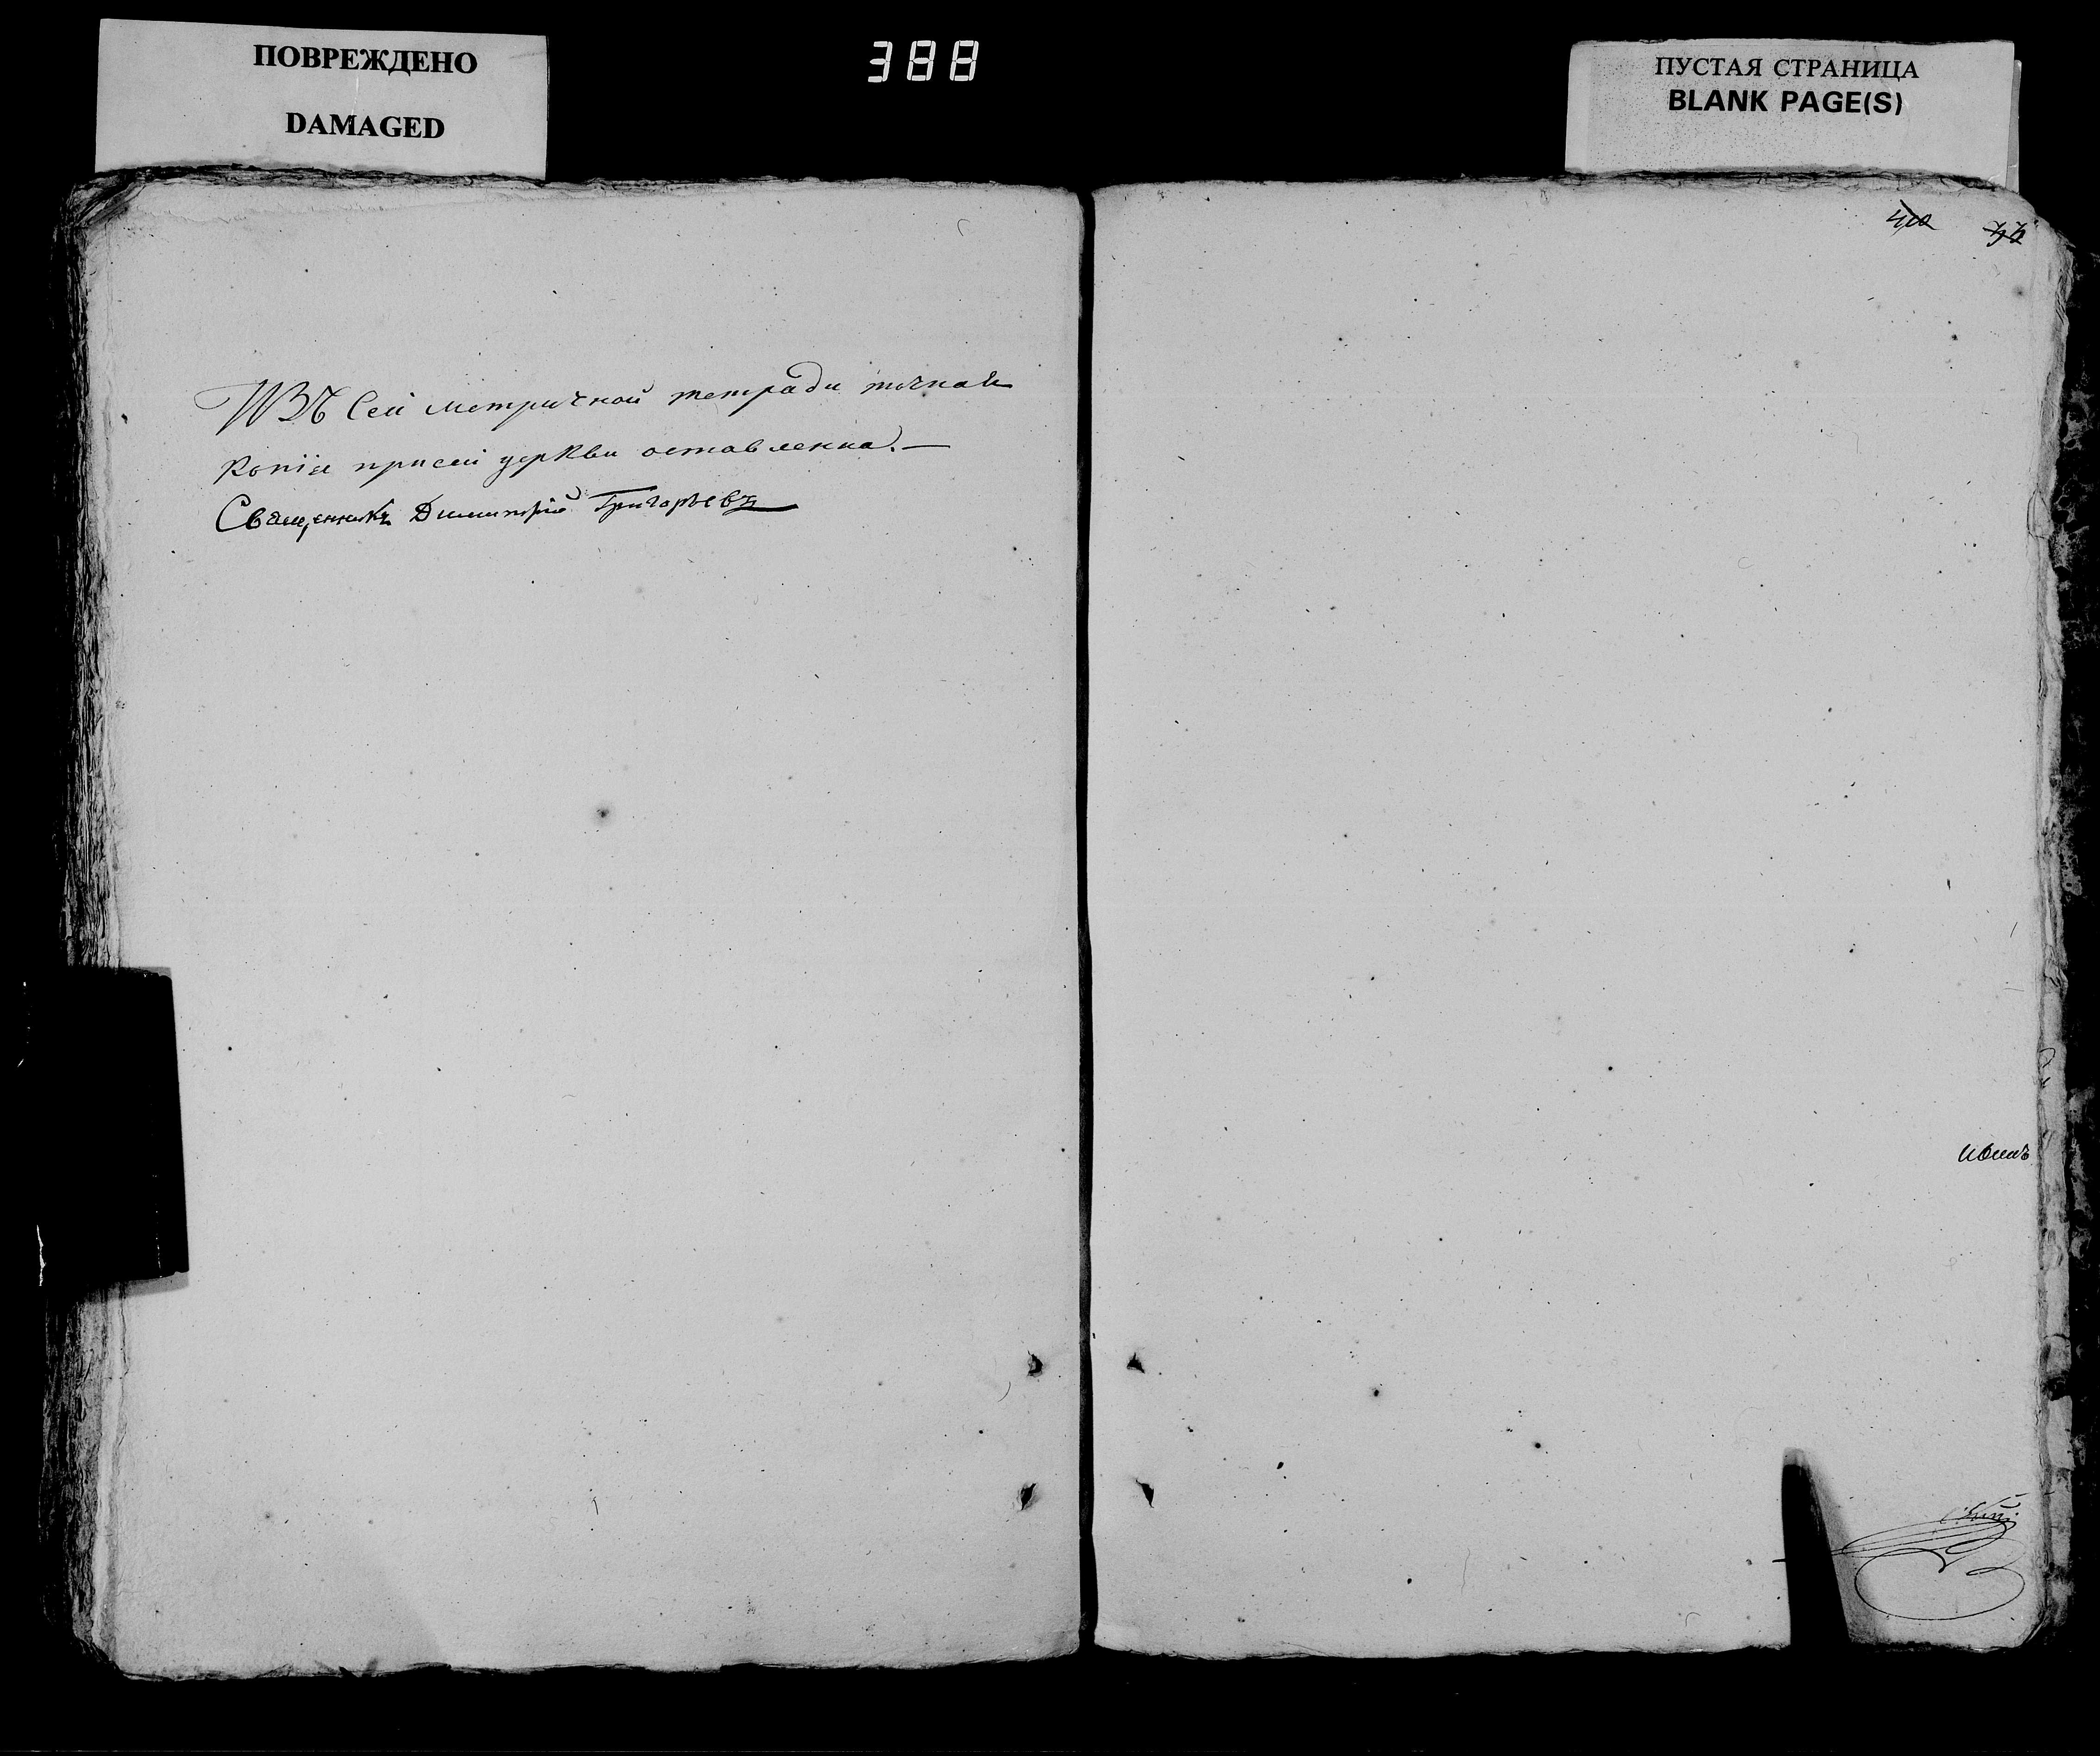 ПОВРЕЖДЕНО
DAMAGED
388
ПУСТАЯ СТРАНИЦА
BLANK PAGE(S)
Изъ Сей метричной тетради точная
копія присей церкви оставленна. —
Священникъ Димитрій Григорьевъ